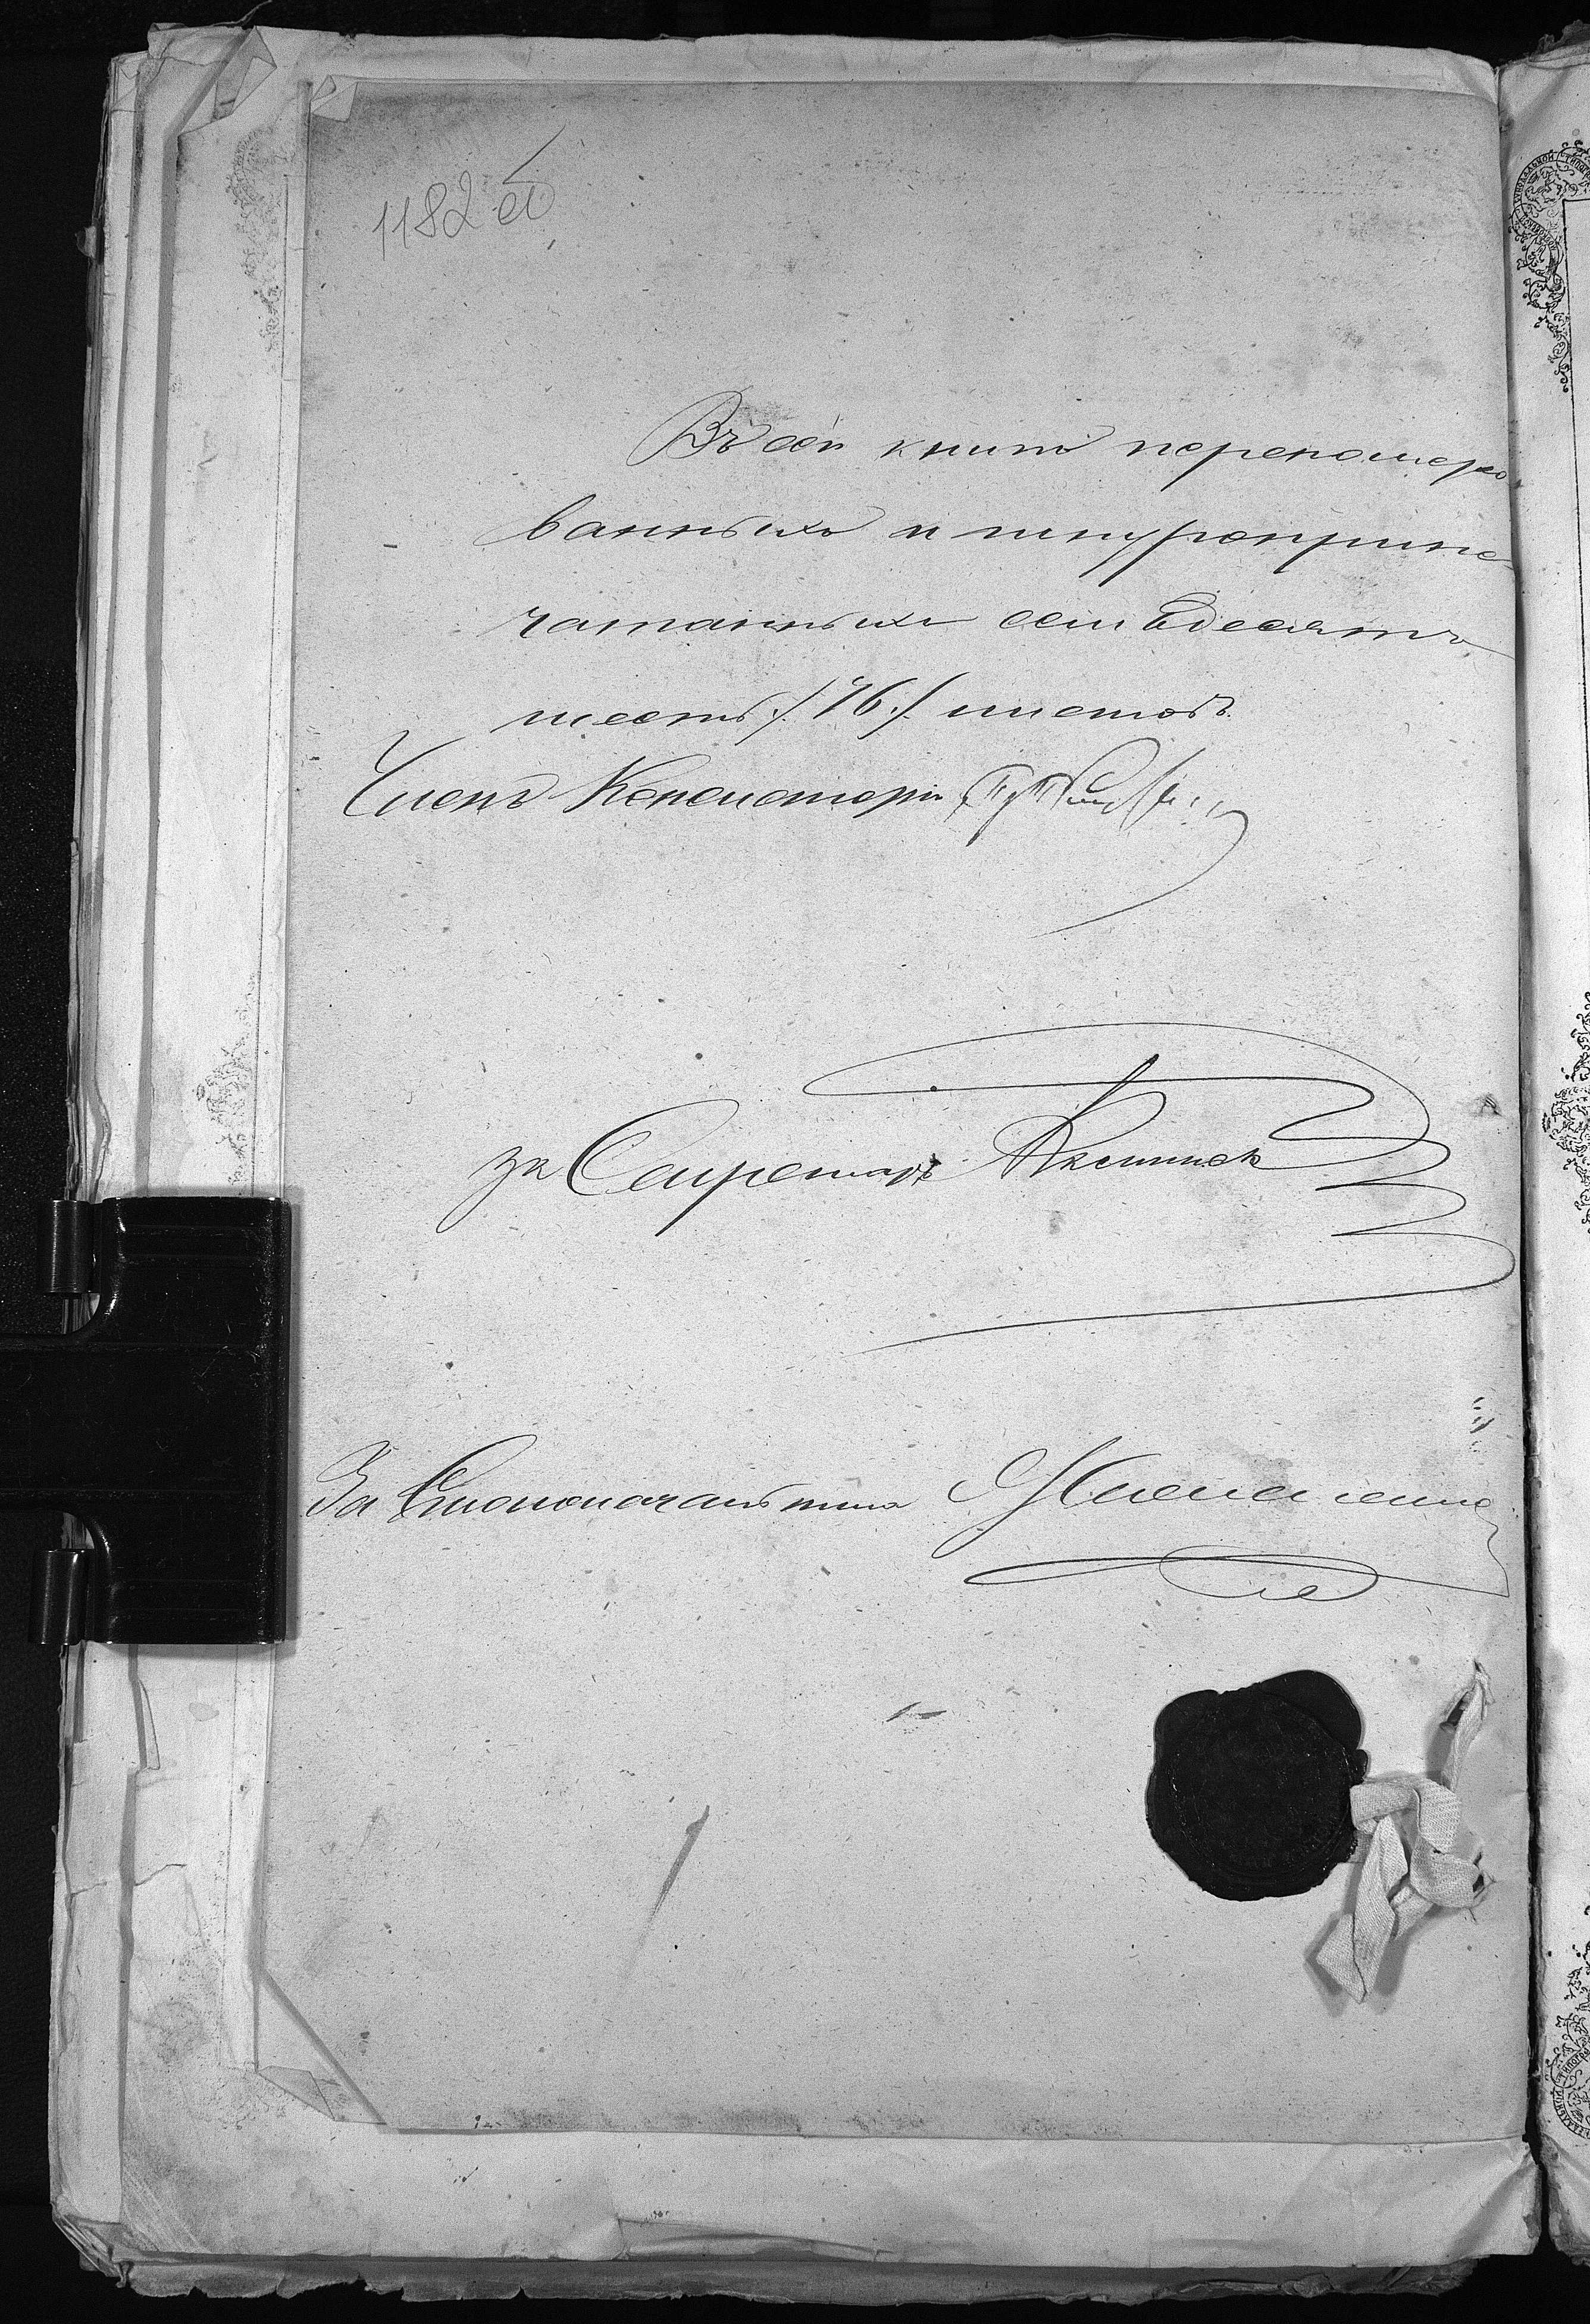 1182 об
Въ сей книге перенумеро
ванныхъ и шнуроприпе-
чатанныхъ семьдесятъ
шесть /76/ листовъ.
Членъ Консисторіи
За Секретаря
За Столоначальника